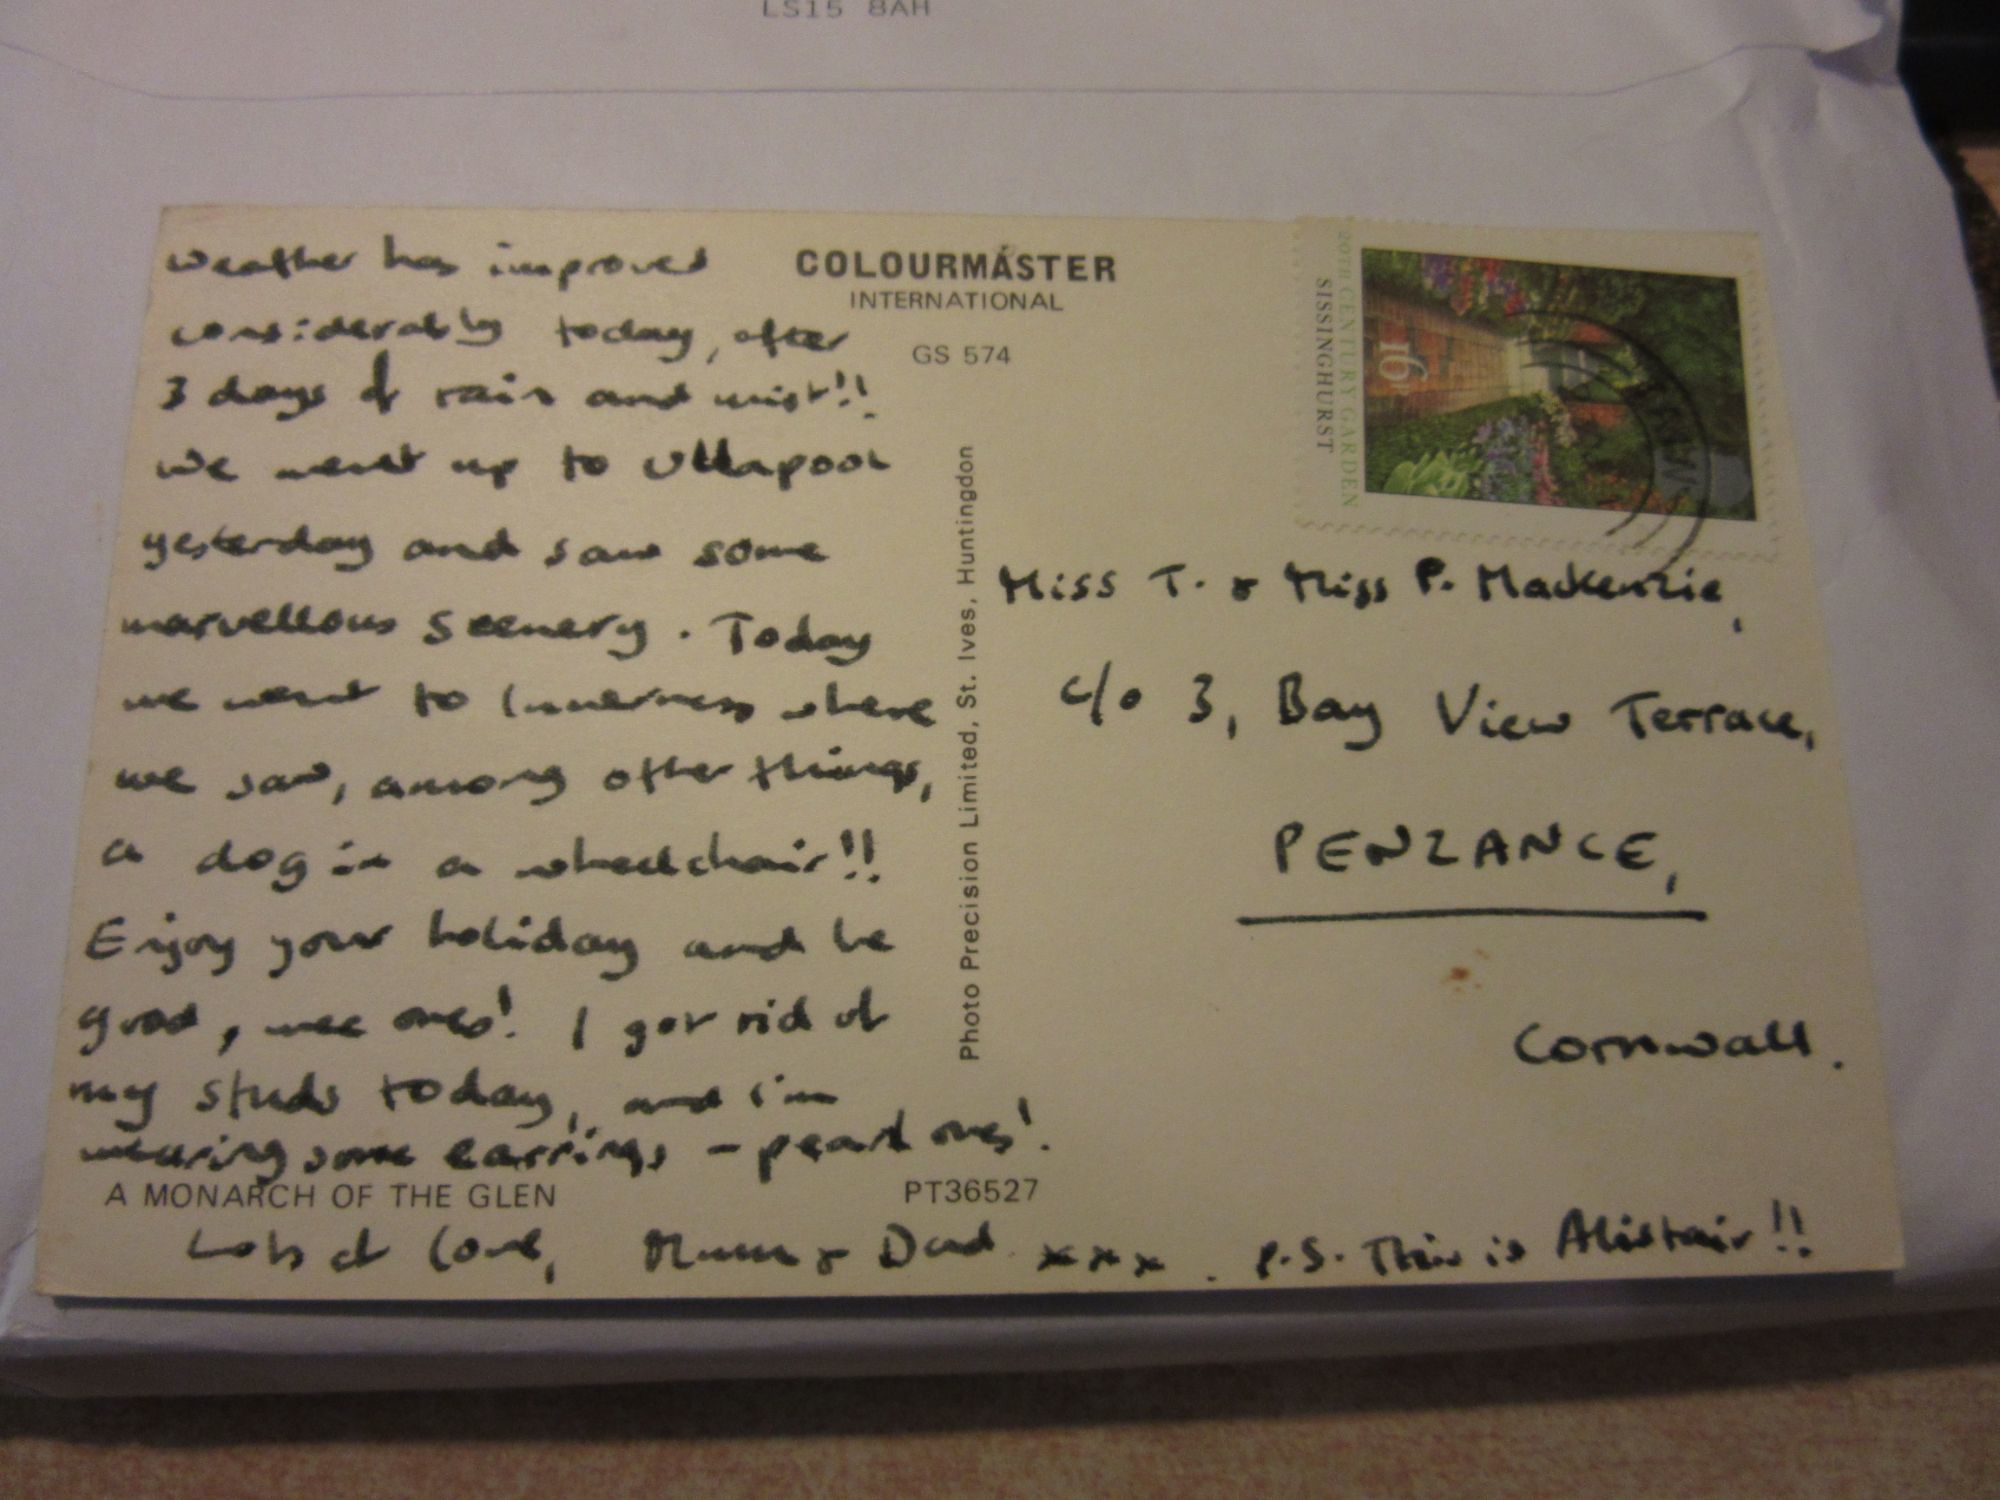 LS15 8AH
weather has improved
considerably today, after
3 days of rain and mist!!
We went up to Ullapool
yesterday and saw some
marvellous scenery. Today
we went to Inverness where
we saw, among other things,
a dog in a wheelchair!!
Enjoy your holiday and be
good, wee ones! I got rid of
my studs today, and i'm
wearing some earrings - pearl ones!
A MONARCH OF THE GLEN
PT36527
Lots of love, Mum & Dad xxx. P.S. This is Alistair!!
COLOURMASTER
INTERNATIONAL
GS 574
Photo Precision Limited, St. Ives, Huntingdon
20TH CENTURY GARDEN
SISSINGHURST
16P
Miss T. & Miss P. Mackenzie,
c/o 3, Bay View Terrace,
PENZANCE,
Cornwall.